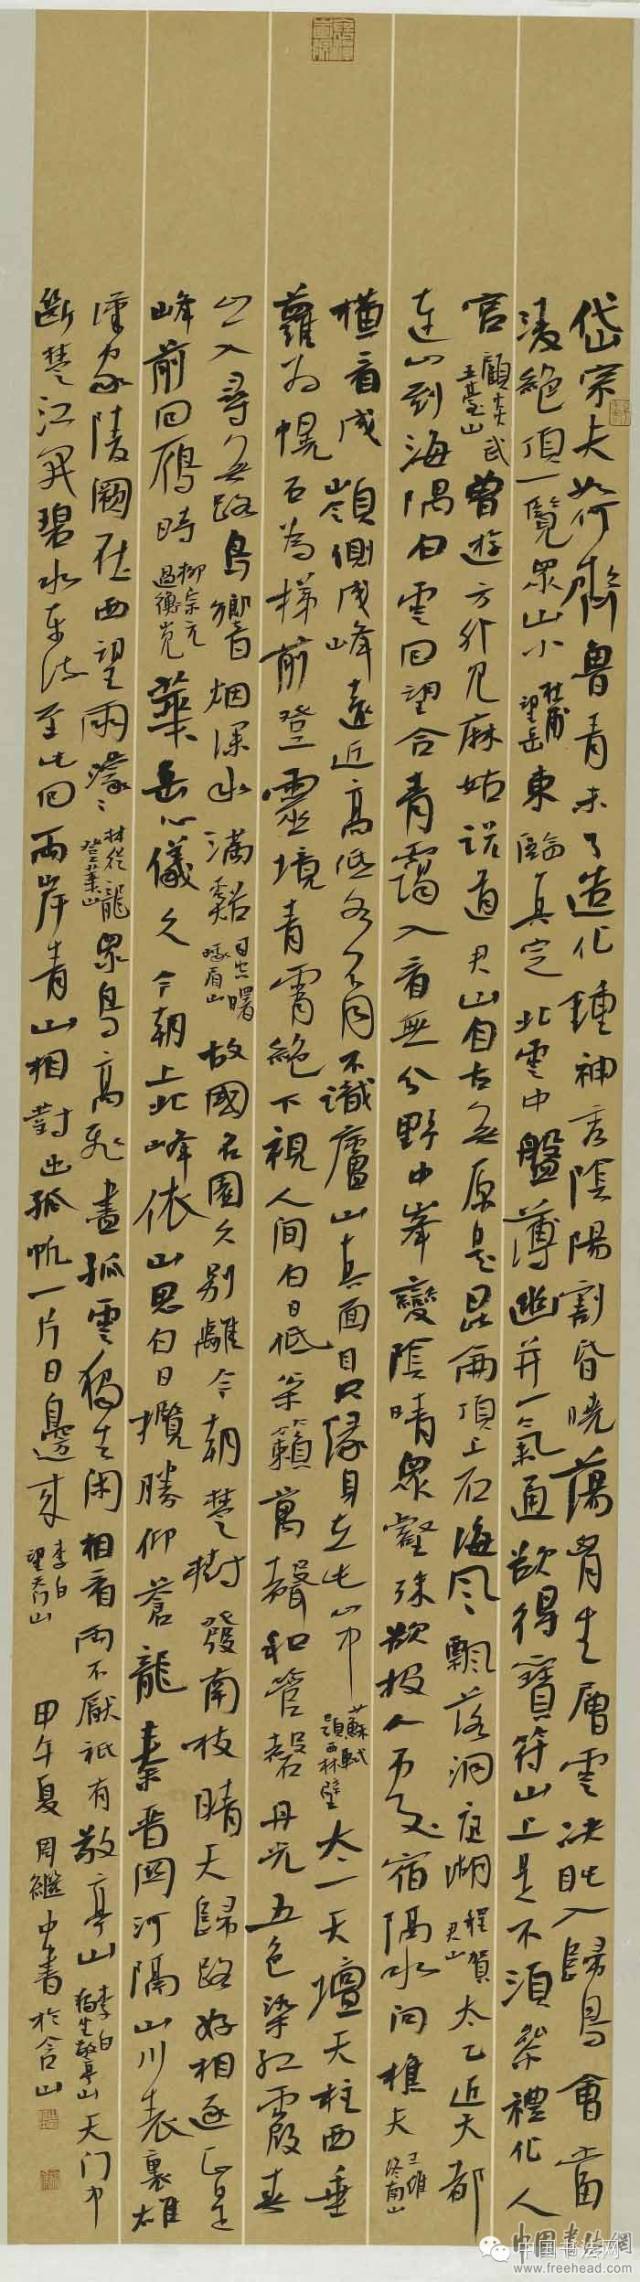 岱宗夫如何齊魯青未了造化鍾神秀陰陽割昏曉蕩胷生層雲決眥入歸鳥會當
凌絕頂一覽眾山小杜甫望岳東臨真定北雲中盤薄幽并一氣通欲得寶符山上是不須參禮化人
宮顧炎武五臺山曾遊方外見麻姑說道君山自古無原是昆侖頂上石海風飄落洞庭湖程賀君山太乙近天都
連山到海隅白雲回望合青靄入看無分野中峯變陰晴眾壑殊欲投人處宿隔水問樵夫王維終南山
橫看成嶺側成峰遠近高低各不同不識廬山真面目只緣身在此山中蘇軾題西林壁太一天壇天柱西垂
蘿為幌石為梯前登靈境青霄絕下視人間白日低眾籟萬聲和管磬丹光五色染紅霞春
山入尋無路鳥響烟深水滿谿峨眉山故國名園久別離今朝楚樹發南枝晴天歸路好相逐正是
峰前回雁時柳宗元過衡岳華岳心儀久今朝上北峰依山思白日攬勝仰蒼龍秦晉關河隔山川表裏雄
漢家陵闕在西望雨濛濛林從龍登華山眾鳥高飛盡孤雲獨去閑相看兩不厭祇有敬亭山李白獨坐敬亭山天门中
斷楚江開碧水東流至此回兩岸青山相對出孤帆一片日邊來李白望天门山甲午夏周繼中書於含山
中国书法网
中国书法網
www.freehead.com